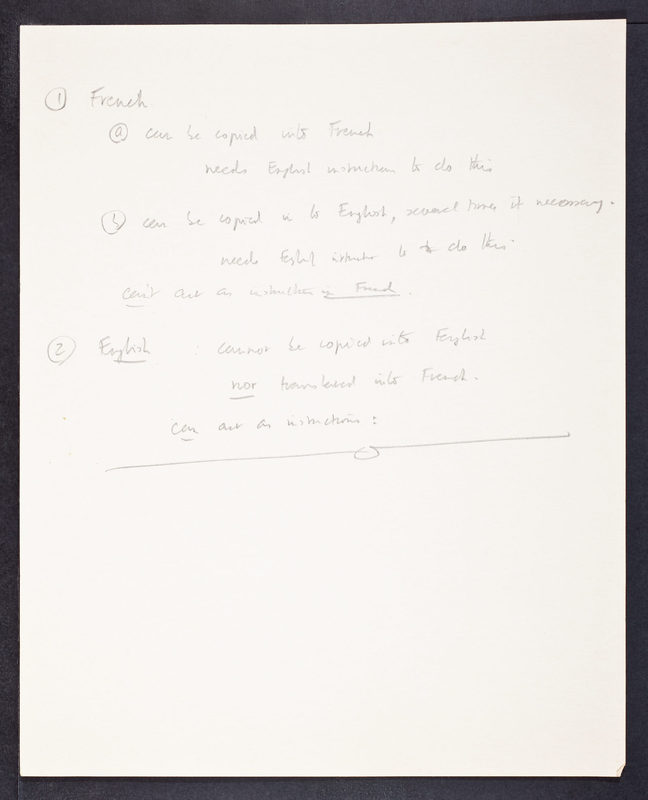 ① French
ⓐ can be copied into French
needs English instructions to do this
ⓑ can be copied in to English, several times if necessary.
needs English instruction to do this
can't act as instruction in French.
② English : cannot be copied into English
nor translated into French.
can act as instructions :